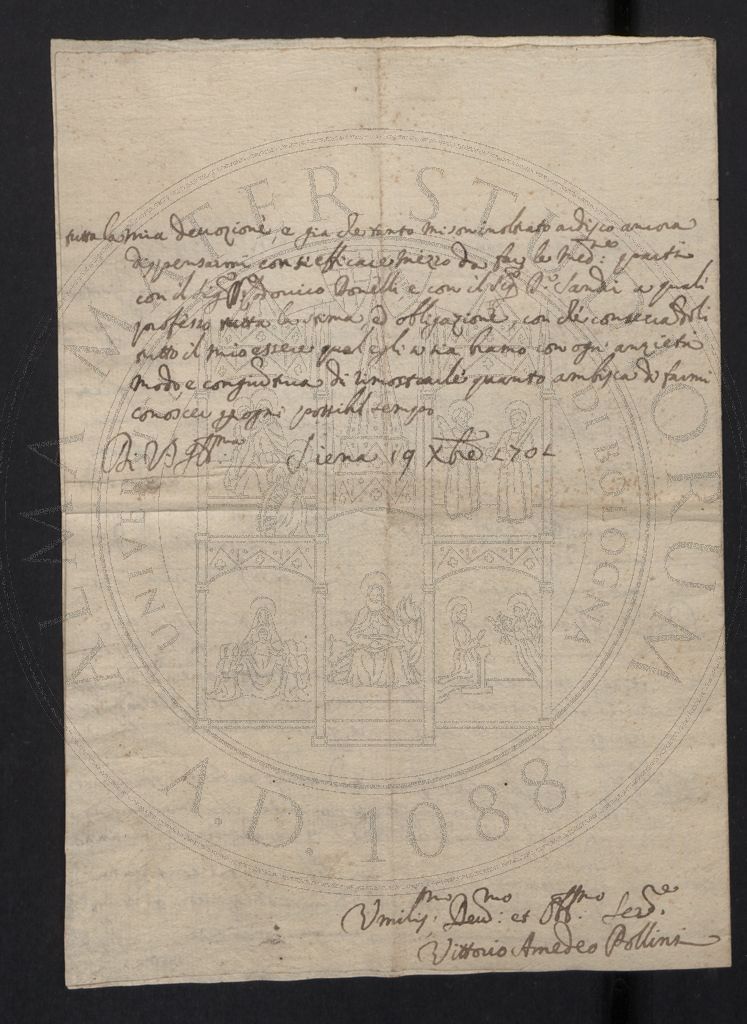 tutta la mia devozione, e gia che tanto mi sono inoltrato ardisco ancora
dispensarmi con si efficace mezzo da far le med:ne parti
con il Sig:r Lodovico Bonelli e con il Sig:r Sandri a quali
professo tutta la stima, ed obligazione, con che consecrandoli
tutto il mio essere qual egli si sia bramo con ogni anzietà
modo, e congiuntura di rimostrarle quanto ambisca di farmi
conoscer p ogni possibil tempo
Di V S Ill:ma Siena 19 Xbre 1701
Umilis:mo Dev:mo et Obb:mo Ser:re
Vittorio Amedeo Pollini
ALMA MATER STUDIORUM
UNIVERSITÀ DI BOLOGNA
A.D. 1088